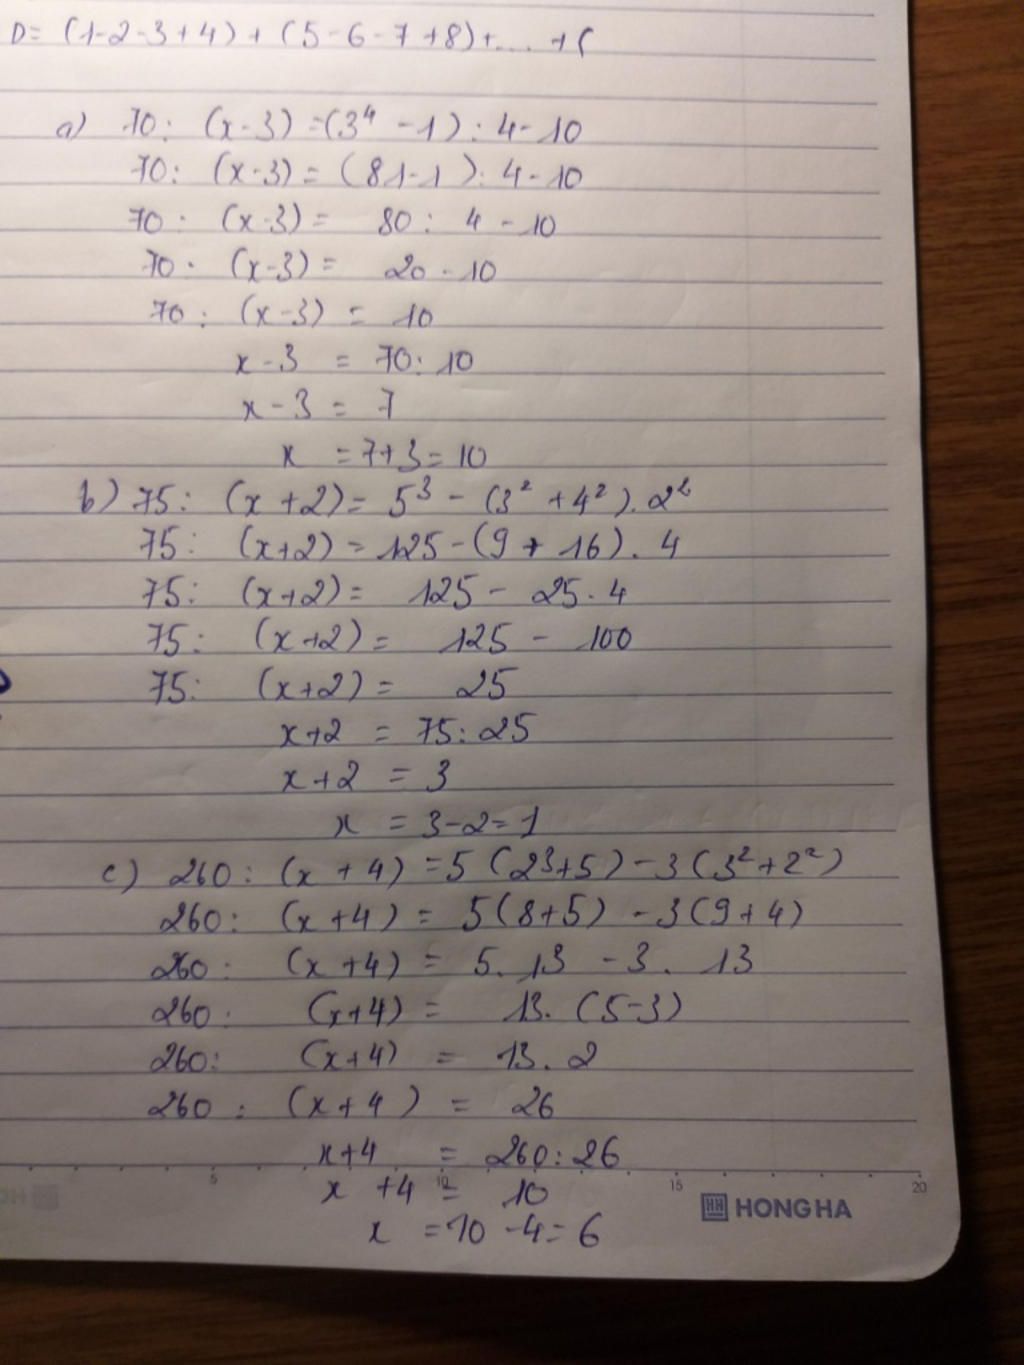 D= (1-2-3+4) + (5-6-7+8)+.... + (
a) 70: (x-3) =(3⁴ -1) : 4-10
70: (x-3) = (81-1): 4-10
70: (x-3) = 80: 4-10
70. (x-3) = 20-10
70: (x-3) = 10
x-3 = 70:10
x-3 = 7
x =7+3=10
b) 75: (x+2)= 5³ - (3² +4²). 2²
75: (x+2) =125-(9+16). 4
75: (x+2)= 125- 25.4
75: (x+2)= 125 - 100
75: (x+2) = 25
x+2 = 75:25
x+2 = 3
x = 3-2=1
c) 260: (x+4) =5 (2³+5) -3 (3²+2²)
260: (x+4) = 5(8+5) -3(9+4)
260: (x+4) = 5. 13 -3. 13
260. (x+4) = 13. (5-3)
260: (x+4) = 13. 2
260: (x+4) = 26
x+4 = 260:26
5 10 15 20
x +4 = 10
HH HONG HA
x =10 -4= 6